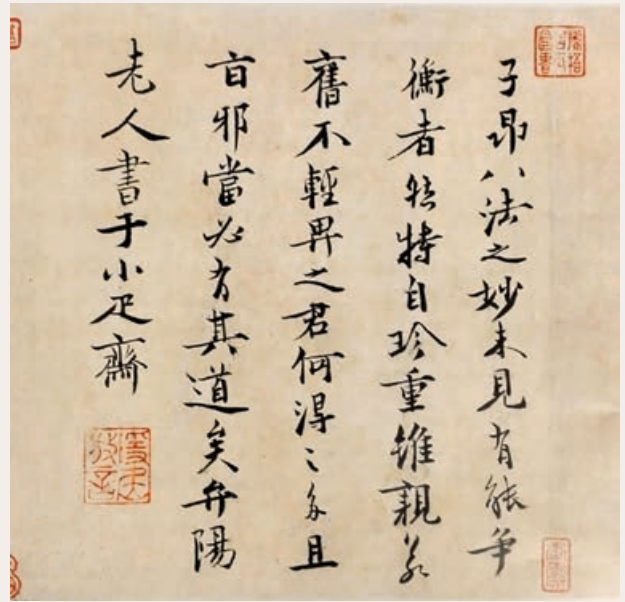 子昂八法之妙未見有能爭
衡者然特自珍重雖親
舊不輕畀之君何得之多且
旨邪當必有其道矣弁陽
老人書于小疋齋